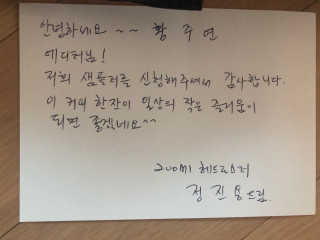 안녕하세요 ~~ 황주연
에디터님!
저희 샘플러를 신청해주셔서 감사합니다.
이 커피 한잔이 일상의 작은 즐거움이
되면 좋겠네요^^
헤드로스터
정진용 드림.